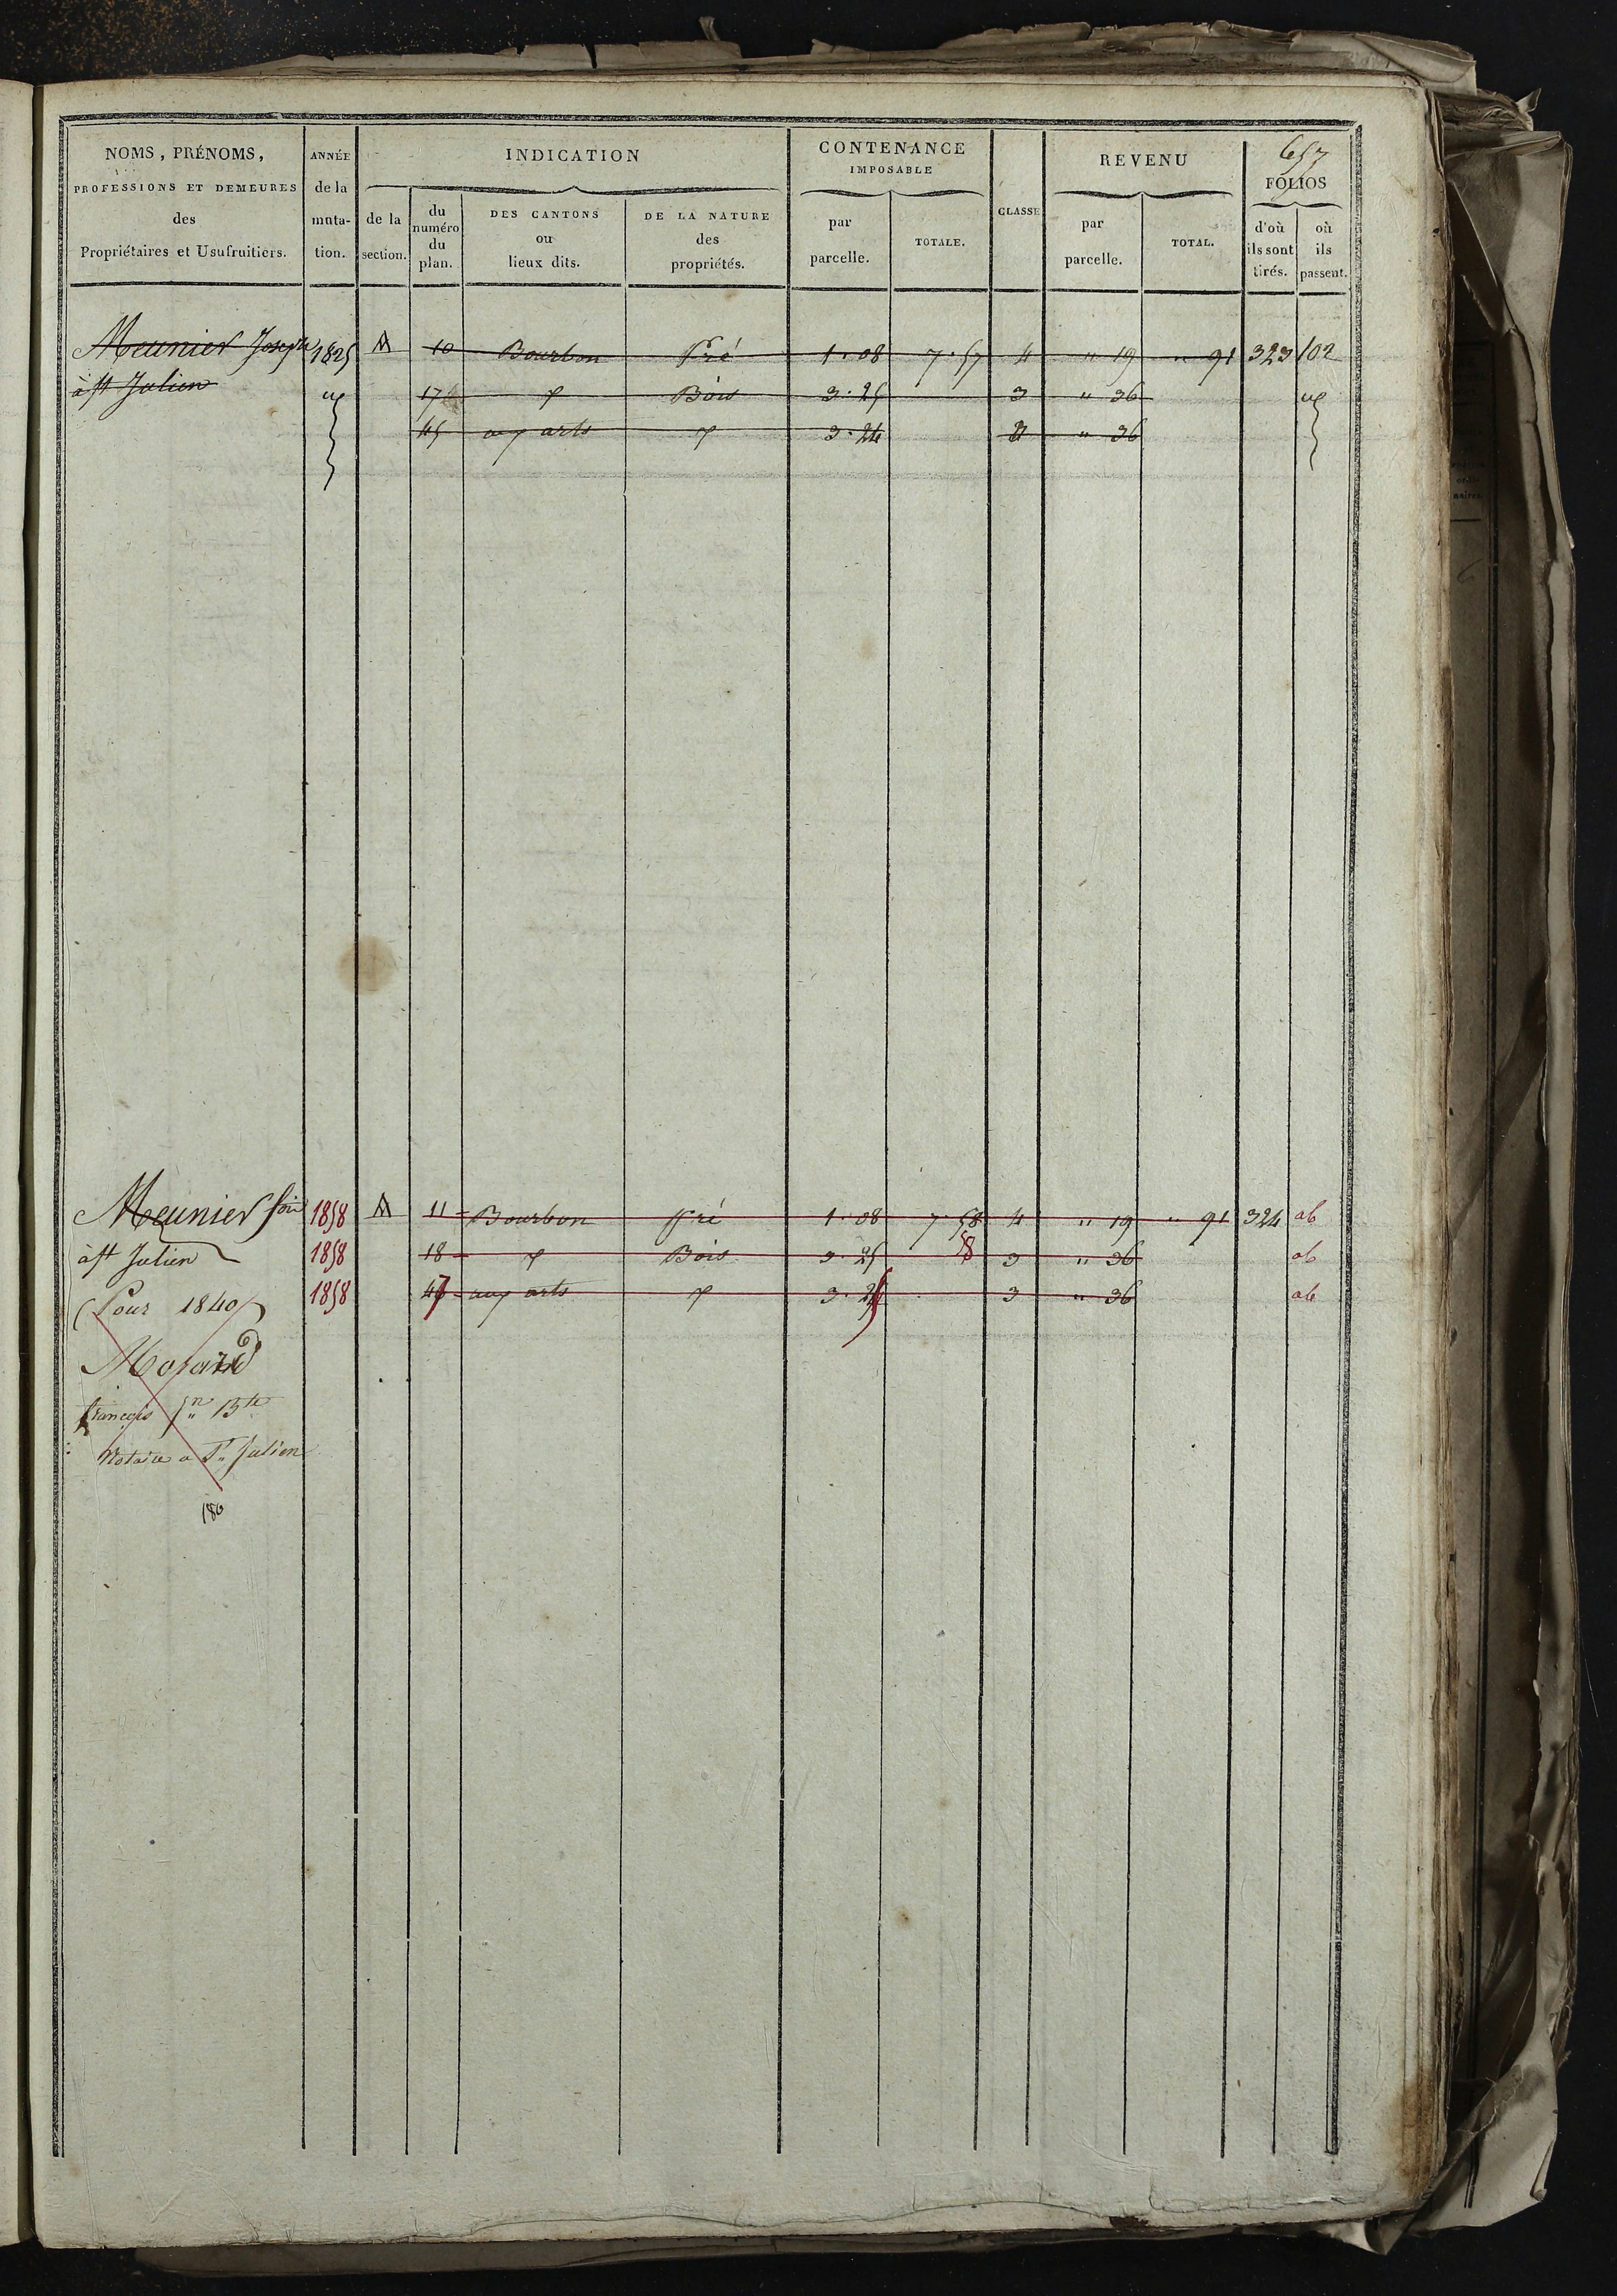 657
NOMS, PRÉNOMS, PROFESSIONS ET DEMEURES des Propriétaires et Usufruitiers.
ANNÉE de la muta- tion.
INDICATION
de la section.
du numéro du plan.
DES CANTONS ou lieux dits.
DE LA NATURE des propriétés.
CONTENANCE IMPOSABLE
par parcelle.
TOTALE.
CLASSE
REVENU
par parcelle.
TOTAL.
FOLIOS
d'où ils sont tirés.
où ils passent.
Meunier Joseph 1825 A 10 Bourbon Pré 1.08 7.57 4 " 19 " 91 323 102
à St Julien 17 Bois 3.25 3 " 36
45 aux arts 3.24 " 36
Meunier 1858 A 11 Bourbon Pré 1.08 7.58 4 " 19 " 91 324 ab
58
à St Julien 1858 18 Bois 3.25 3 " 36 ab
(Pour 1840) 1858 47 aux arts 3.25 3 " 36 ab
Morard
françois Bte
Notaire a St Julien
180